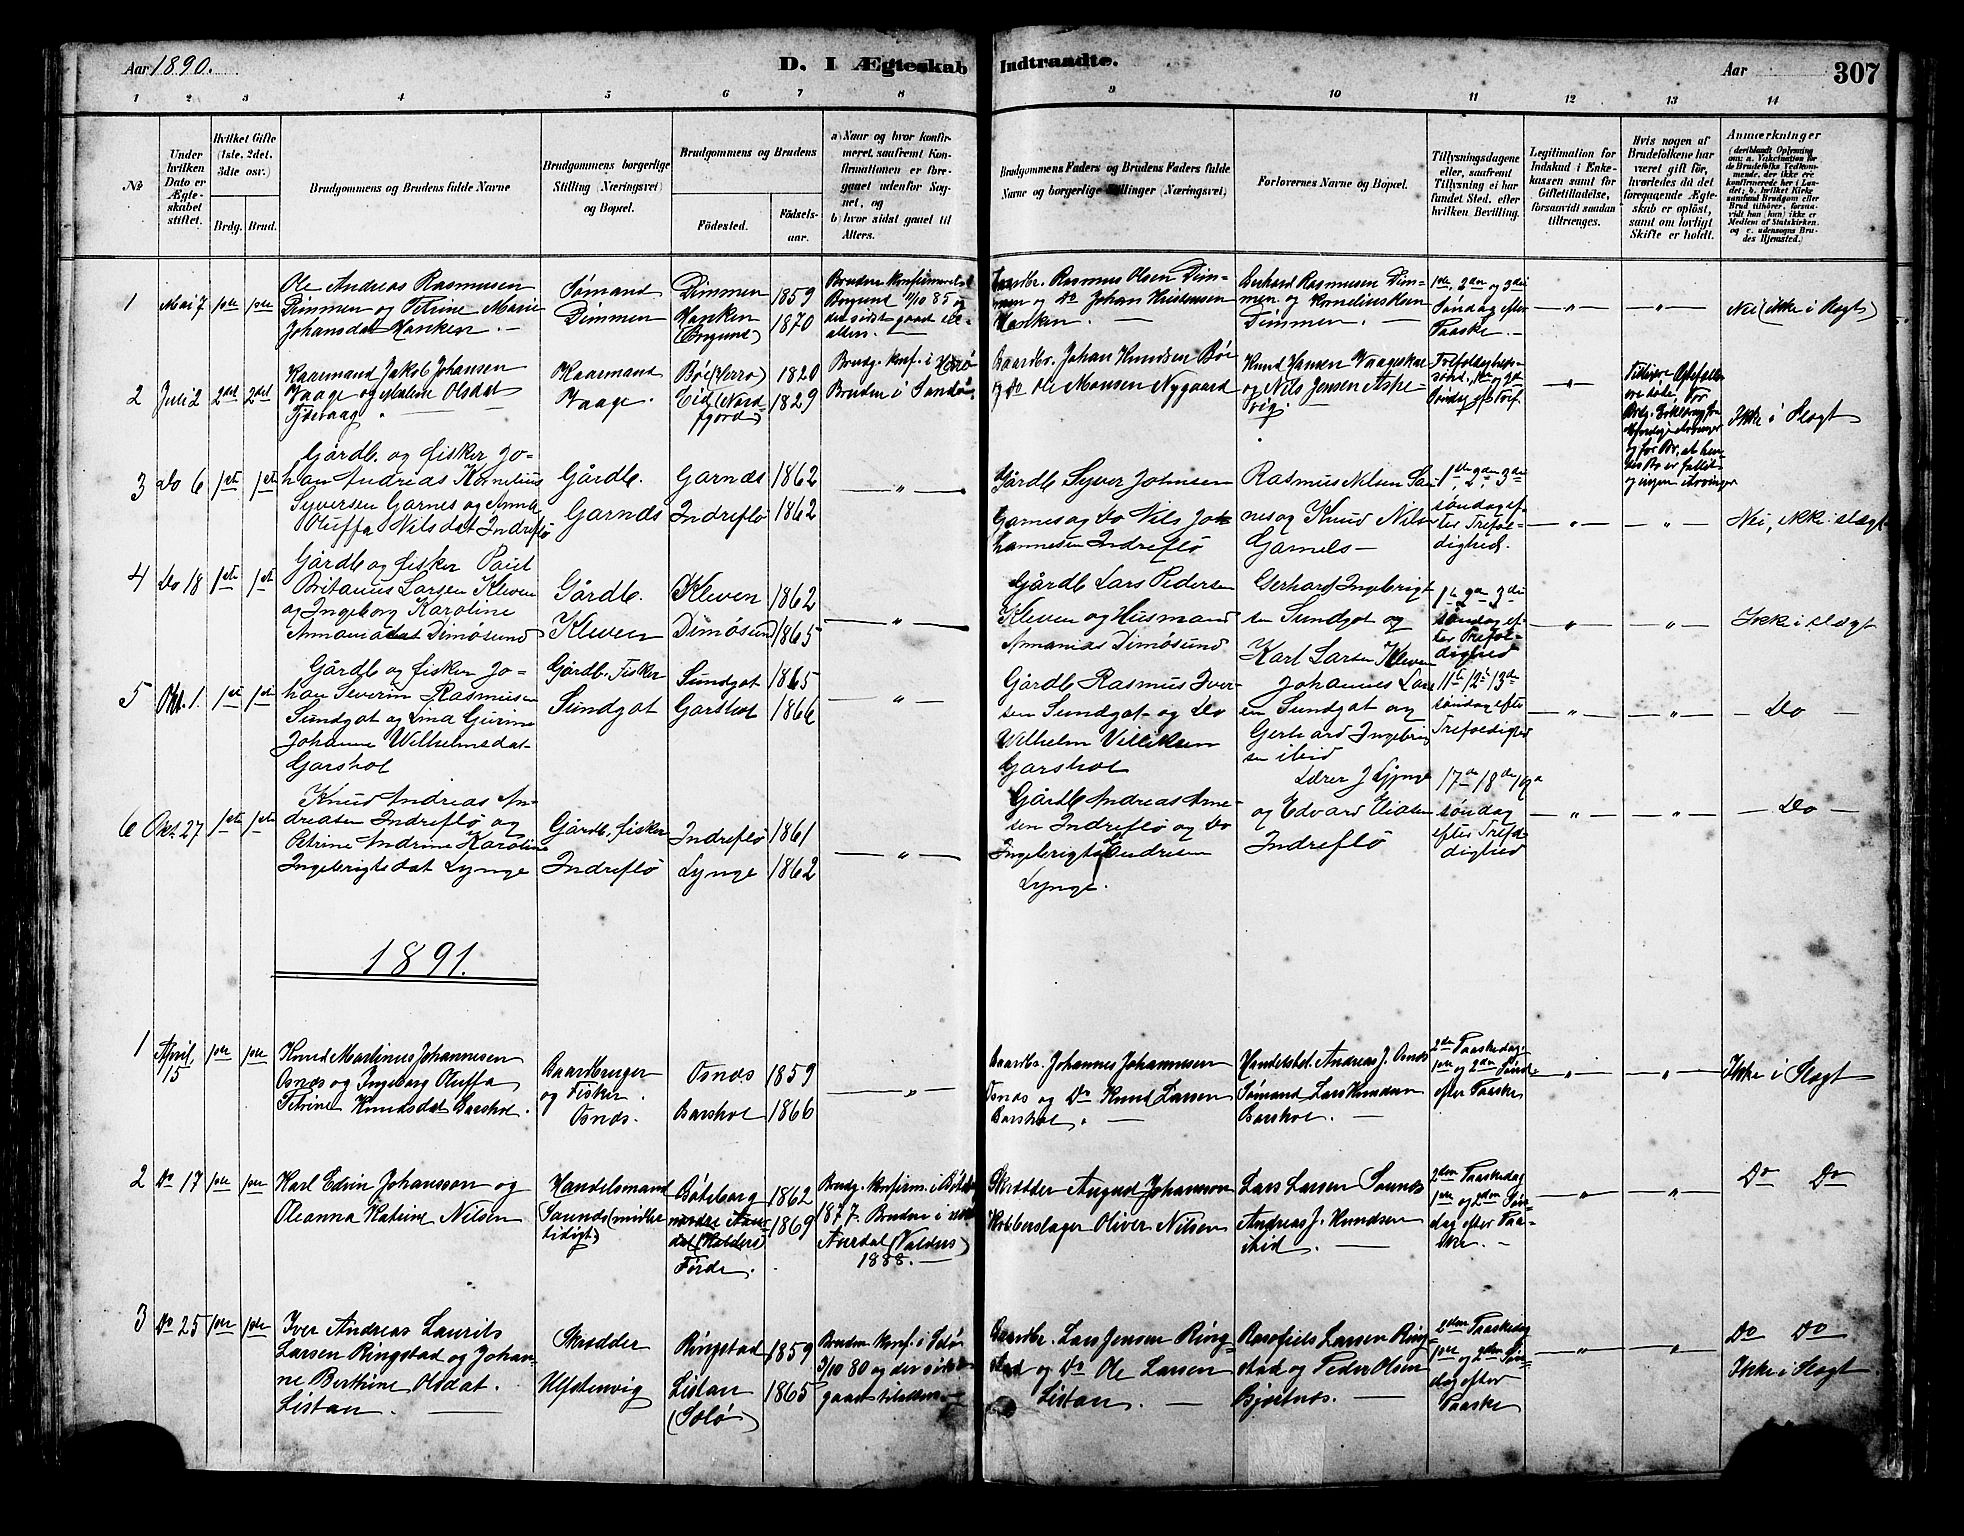 Aar 1890.
D. I Ægteskab Indtraadte.
Aar
307
1 2 3 4 5 6 7 8 9 10 11 12 13 14
No
Under hvilken Dato er Ægteskabet stiftet.
Hvilket Gifte (1ste, 2det, 3die osv.)
Brdg. Brud.
Brudgommens og Brudens fulde Navne
Brudgommens borgerlige Stilling (Næringsvei) og Bopæl.
Brudgommens og Brudens
Födested.
Födselsaar.
a) Naar og hvor konfirmeret, saafremt Konfirmationen er foregaaet udenfor Sognet, og
b) hvor sidst gaaet til Alters.
Brudgommens Faders og Brudens Faders fulde Navne og borgerlige Stillinger (Næringsvei)
Forlovernes Navne og Bopæl.
Tillysningsdagene eller, saafremt Tillysning ei har fundet Sted, efter hvilken Bevilling.
Legitimation for Indskud i Enkekassen samt for Giftetilladelse, forsaavidt saadan tiltrænges.
Hvis nogen af Brudefolkene har været gift før, hvorledes da det foregaaende Ægteskab er oplöst, samt om lovligt Skifte er holdt.
Anmærkninger
1 Mai 7 1ste 1ste
Ole Andreas Rasmussen
Dimmen og Petrine Marie
Johansdat Hanken. —
Sømand
Dimmen
Dimmen 1859
Hanken 1870
(Borgund)
Bruden konfirmeret i
Borgund 11/10 85 og
der sidst gaaet til
alters. —
Gaardbr. Rasmus Olsen Dim-
men og Do Johan Kristensen
Hanken. —
Berhard Rasmussen Dim-
men og Kornelius Knutsen
Dimmen. —
1ste, 2den og 3die
Søndag efter
Paaske. —
— " — — " —
Nei (ikke i Slægt)
2 Juli 2 2det 2det
Kaarmand Jakob Johansen
Vaage og Malene Olsdat
Fjdevaag
Kaarmand
Vaage.
Bøe (Herrø) 1820
Eid (Nord- 1829
fjord)
Brudg. konf. i Herrø
Bruden i Sandø
Gaardbr. Johan Knudsen Bøe
og do Ole Monsen Nygaard
Knud Hansen Vaageskar
og Nils Jensen Aspe-
vig.
Trefoldigheds-
sønd., 1ste og 2den
Søndag eft Tref.
— " —
Ikke i Slægt
3 Do 6 1ste 1ste
Gårdb. og fisker Jo-
han Andreas Kornelius
Syversen Garnes og Anna
Oluffa Nilsdat Indreflø
Gårdb.
Garnæs
Garnæs 1862
Indreflø 1862
— " —
Gårdb Syver Johnsen
Garnes og Do Nils Jo-
hannesen Indreflø
Rasmus Nilsen Gar
nes og Knud Nilsen
Garnes —
1ste 2den 3die
søndag ef-
ter Trefol-
dighed.
— " — — " —
Nei, ikke i slægt
4 Do 18 1ste 1ste
Gårdb og fisker Paul
Britanus Larsen Kleven
og Ingeborg Karoline
Annaniadat Dimøsund
Gårdb.
Kleven
Kleven 1862
Dimøsund 1865
— " —
Gårdb Lars Pedersen
Kleven og Husmand
Annanias Dimøsund
Gerhard Ingebrigt
sen Sundgot og
Karl Larsen Kleven
1ste 2den 3die
søndag ef-
ter Trefol-
dighed
— " — — " —
Ikke i slægt
5 Okt. 1. 1ste 1ste
Gårdb og fisker Jo-
han Severin Rasmussen
Sundgot og Lina Gurine
Johanne Wilhelmsdat
Garshol
Gårdb. Fisker
Sundgot
Sundgot 1865
Garshol 1866
— " —
Gårdb Rasmus Iver-
sen Sundgot og Do
Wilhelm Villiksen
Garshol
Johannes Lars
en Sundgot og
Gerhard Ingebrigt
sen ibid
11te 12te 13de
søndag efter
Trefoldighed
— " — — " —
— Do —
6 Okt. 27 1ste 1ste
Knud Andreas An-
dreasen Indreflø og
Petrine Andrine Karoline
Ingebrigtsdat Lynge
Gårdb, fisker
Indreflø
Indreflø 1861
Lynge 1862
— " —
Gårdb Andreas Arne-
sen Indreflø og Do
Ingebrigt Endresen
Lynge.
Lærer J Lynge
og Edvard Eliasen
Indreflø
17de 18de 19de
søndag
efter Trefol-
dighed
— " — — " —
— Do —
1891.
1 April 15 1ste 1ste
Knud Martinus Johannesen
Osnæs og Ingeborg Oluffa
Petrine Knudsdat Garshol.
Gaardbruger
og Fisker.
Osnæs.
Osnæs 1859
Garshol 1866
— " —
Gaardbr. Johannes Johannesen
Osnæs og Do Knud Larsen
Garshol. —
Handelsbet. Andreas J. Osnæs
Sømand Lars Knudsen
Garshol. —
2den Paaskedag,
1ste og 2den Sønd.
efter Paaske
— " — — " —
Ikke i Slægt
2 Do 17 1ste 1ste
Karl Edvin Johansson og
Oleanna Katrine Nilsen
Handelsmand
Saunæs (midler
tidigt)
Gøteborg 1862
nordre Aur- 1869
dal (Valders)
Førde.
Brudg. konfirm. i Gøteborg
1877. Bruden i nordre
Aurdal (Valders)
1888. —
Skrædder August Johansson
Kobberslager Oliver Nilsen
Lars Larsen Saunæs
Andreas J. Knudsen
ibid. —
2den Paaskedag
1ste og 2den Søn-
dag efter Paa-
ske. —
— " — — " —
Do Do
3 Do 25 1ste 1ste
Iver Andreas Laurits
Larsen Ringstad og Johan-
ne Berthine Olsdat.
Listau. —
Skrædder
Ulfstenvig
Ringstad 1859
Listau 1865
(Solø)
Bruden konf. i Solø
3/10 80 og der sidst
gaaet til alters. —
Gaardbr. Lars Jensen Ring-
stad og Do Ole Larsen
Listau. —
Larsen Ring-
stad og Peder Olsen
Bjørtnæs. —
2den Paaskedag
1ste og 2den Søn-
dag efter
Paaske
— " — — " —
Do Do
Ikke i Slægt